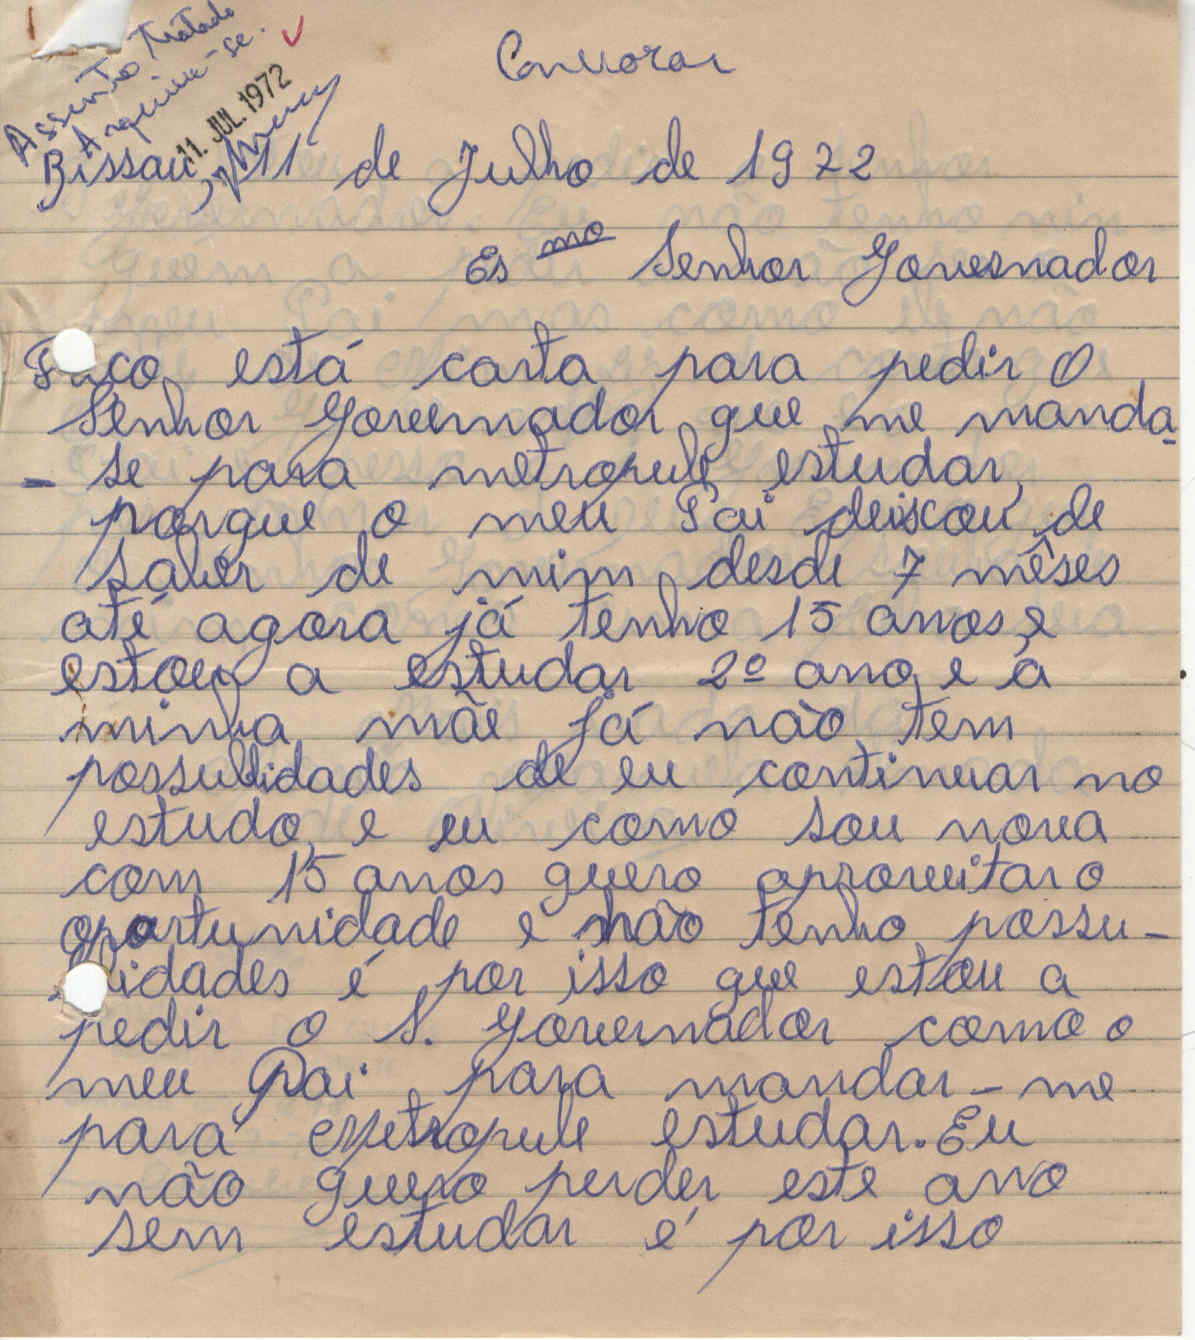 Assento Tratado
Arquive-se.
11. JUL. 1972
Convocar
Bissau, 11 de Julho de 1972
Es mo Senhor Governador
Faço está carta para pedir O
Senhor Governador que me manda
- se para metropule estudar,
porque o meu Pai deiscou de
saber de mim desde 7 mêses
até agora já tenho 15 anos e
estou a estudar 2º ano e á
minha mãe já não tem
possublidades de eu continuar no
estudo e eu como sou nova
com 15 anos quero aproveitar o
oportunidade e não tenho possu-
lidades é por isso que estou a
pedir o S. Governador como o
meu Pai para mandar-me
para Metropule estudar. Eu
não quero perder este ano
sem estudar é por isso